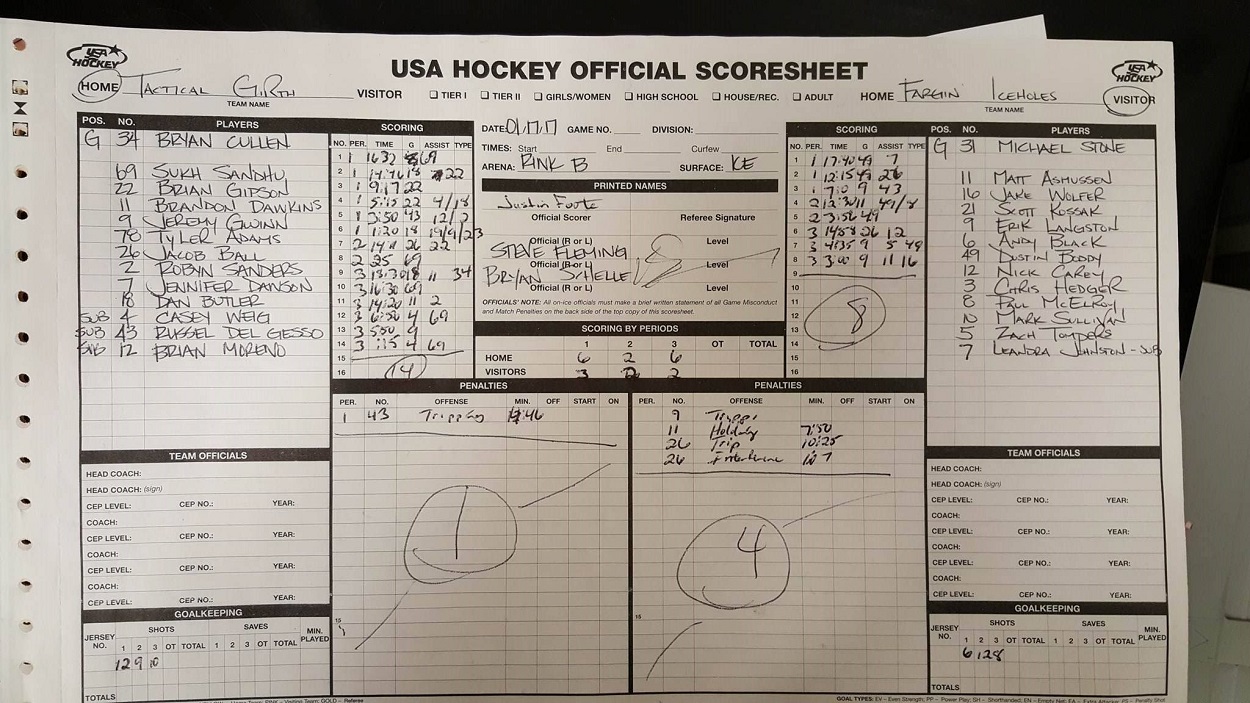 USA HOCKEY
USA HOCKEY OFFICIAL SCORESHEET
USA HOCKEY
HOME TACTICAL GIRTH VISITOR
TEAM NAME
☐ TIER I ☐ TIER II ☐ GIRLS/WOMEN ☐ HIGH SCHOOL ☐ HOUSE/REC. ☐ ADULT
HOME FARGIN ICEHOLES VISITOR
TEAM NAME
POS. NO. PLAYERS
G 34 BRYAN CULLEN
69 SUKH SANDHU
22 BRIAN GIPSON
11 BRANDON DAWKINS
9 JEREMY GWINN
78 TYLER ADAMS
26 JACOB BALL
2 ROBYN SANDERS
7 JENNIFER DAWSON
18 DAN BUTLER
SUB 4 CASEY WEIG
SUB 43 RUSSEL DEL GESSO
SUB 12 BRIAN MORENO
SCORING
NO. PER. TIME G ASSIST TYPE
1 1 16:32 69
2 1 18 22
3 1 9:17 22
4 1 5:15 22 4/18
5 1 3:50 43 12/2
6 1 1:20 18 19/9/23
7 2 26 22
8 2 25 69
9 3 13:30 18 11 34
10 3 16:30 69
11 3 14:20 11 2
12 3 6:50 4 69
13 3 550 9
14 3 :15 4 69
15
16 14
DATE: 01/17/17 GAME NO. DIVISION:
TIMES: Start End Curfew
ARENA: RINK B SURFACE: ICE
PRINTED NAMES
Justin Foote
Official Scorer Referee Signature
Official (R or L) Level
STEVE FLEMING
Official (R or L) Level
BRYAN SCHELLE
Official (R or L) Level
OFFICIALS' NOTE: All on-ice officials must make a brief written statement of all Game Misconduct
and Match Penalties on the back side of the top copy of this scoresheet.
SCORING BY PERIODS
1 2 3 OT TOTAL
HOME 6 2 6
VISITORS 3 2 2
SCORING
NO. PER. TIME G ASSIST TYPE
1 1 17:40 49 7
2 1 12:15 49 26
3 1 7:10 9 43
4 2 12:30 11 49/8
5 2 3:56 49
6 3 14:58 26 12
7 3 4:35 9 5 49
8 3 3:00 9 11 16
9
10
11
12 8
13
14
15
16
POS. NO. PLAYERS
G 31 MICHAEL STONE
11 MATT ASMUSSEN
16 JAKE WOLFER
21 SCOTT KOSSAK
9 ERIK LANGSTON
6 ANDY BLACK
49 DUSTIN BUDDY
12 NICK CAREY
3 CHRIS HEDGER
8 PAUL McELROY
10 MARK SULLIVAN
5 ZACH TOMPERS
7 LEANDRA JOHNSTON - SUB
PENALTIES
PER. NO. OFFENSE MIN. OFF START ON
1 43 Tripping
1
15
PENALTIES
PER. NO. OFFENSE MIN. OFF START ON
9
11 Holding 7:50
26 Trip 10:25
26
4
15
TEAM OFFICIALS
HEAD COACH:
HEAD COACH: (sign)
CEP LEVEL: CEP NO.: YEAR:
COACH:
CEP LEVEL: CEP NO.: YEAR:
COACH:
CEP LEVEL: CEP NO.: YEAR:
COACH:
CEP LEVEL: CEP NO.: YEAR:
GOALKEEPING
JERSEY NO. SHOTS SAVES MIN. PLAYED
1 2 3 OT TOTAL 1 2 3 OT TOTAL
12 9 10
TOTALS
TEAM OFFICIALS
HEAD COACH:
HEAD COACH: (sign)
CEP LEVEL: CEP NO.: YEAR:
COACH:
CEP LEVEL: CEP NO.: YEAR:
COACH:
CEP LEVEL: CEP NO.: YEAR:
COACH:
CEP LEVEL: CEP NO.: YEAR:
GOALKEEPING
JERSEY NO. SHOTS SAVES MIN. PLAYED
1 2 3 OT TOTAL 1 2 3 OT TOTAL
6 12 8
TOTALS